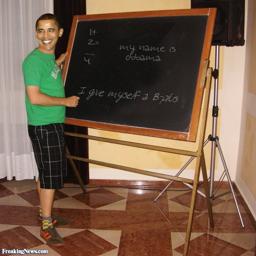 1+
2=
4
my name is
obama
I give myself a
FreakingNews.com